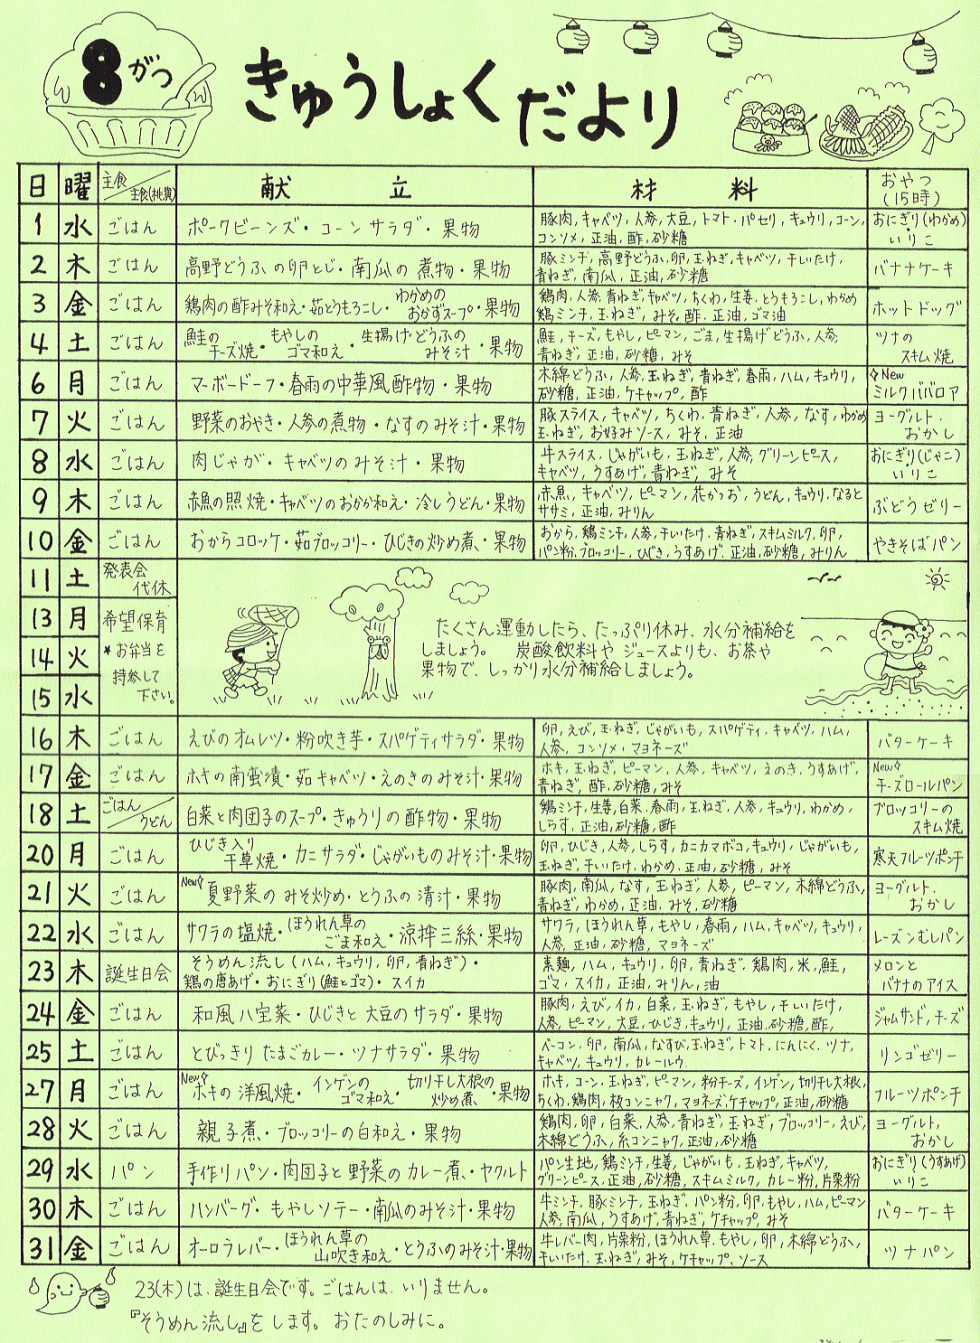 8がつ
きゅうしょくだより
日 曜 主食/主食(挑糞) 献立 材料 おやつ(15時)
1 水 ごはん ポークビーンズ・コーンサラダ・果物 豚肉,キャベツ,人参,大豆,トマト,パセリ,キュウリ,コーン,コンソメ,正油,酢,砂糖 おにぎり(わかめ)いりこ
2 木 ごはん 高野どうふの卵とじ・南瓜の煮物・果物 豚ミンチ,高野どうふ,卵,玉ねぎ,キャベツ,干しいたけ,青ねぎ,南瓜,正油,砂糖 バナナケーキ
3 金 ごはん 鶏肉の酢みそ和え・茹とうもろこし・わかめのおかずスープ・果物 鶏肉,人参,青ねぎ,キャベツ,ちくわ,生姜,とうもろこし,わかめ,鶏ミンチ,玉ねぎ,みそ,酢,正油,ゴマ油 ホットドッグ
4 土 ごはん 鮭のチーズ焼・もやしのゴマ和え・生揚げどうふのみそ汁・果物 鮭,チーズ,もやし,ピーマン,ごま,生揚げどうふ,人参,青ねぎ,正油,砂糖,みそ ツナのスキム焼
6 月 ごはん マーボードーフ・春雨の中華風酢物・果物 木綿どうふ,人参,玉ねぎ,青ねぎ,春雨,ハム,キュウリ,砂糖,正油,ケチャップ,酢 New ミルクババロア
7 火 ごはん 野菜のおやき・人参の煮物・なすのみそ汁・果物 豚スライス,キャベツ,ちくわ,青ねぎ,人参,なす,わかめ,玉ねぎ,お好みソース,みそ,正油 ヨーグルト・おかし
8 水 ごはん 肉じゃが・キャベツのみそ汁・果物 牛スライス,じゃがいも,玉ねぎ,人参,グリーンピース,キャベツ,うすあげ,青ねぎ,みそ おにぎり(じゃこ)いりこ
9 木 ごはん 赤魚の照焼・キャベツのおかか和え・冷しうどん・果物 赤魚,キャベツ,ピーマン,花かつお,うどん,キュウリ,なると,ササミ,正油,みりん ぶどうゼリー
10 金 ごはん おからコロッケ・茹ブロッコリー・ひじきの炒め煮・果物 おから,鶏ミンチ,人参,干しいたけ,青ねぎ,スキムミルク,卵,パン粉,ブロッコリー,ひじき,うすあげ,正油,砂糖,みりん やきそばパン
11 土 発表会代休
13 月 希望保育
14 火 *お弁当を
15 水 持参して下さい。
たくさん運動したら、たっぷり休み、水分補給を
しましょう。 炭酸飲料やジュースよりも、お茶や
果物で、しっかり水分補給しましょう。
16 木 ごはん えびのオムレツ・粉吹き芋・スパゲティサラダ・果物 卵,えび,玉ねぎ,じゃがいも,スパゲティ,キャベツ,ハム,人参,コンソメ・マヨネーズ バターケーキ
17 金 ごはん ホキの南蛮漬・茹キャベツ・えのきのみそ汁・果物 ホキ,玉ねぎ,ピーマン,人参,キャベツ,えのき,うすあげ,青ねぎ,酢,砂糖,みそ New チーズロールパン
18 土 ごはん/うどん 白菜と肉団子のスープ・きゅうりの酢物・果物 鶏ミンチ,生姜,白菜,春雨,玉ねぎ,人参,キュウリ,わかめ,しらす,正油,砂糖,酢 ブロッコリーのスキム焼
20 月 ごはん ひじき入り千草焼・カニサラダ・じゃがいものみそ汁・果物 卵,ひじき,人参,しらす,カニカマボコ,キュウリ,じゃがいも,玉ねぎ,干しいたけ,わかめ,正油,砂糖,みそ 寒天フルーツポンチ
21 火 ごはん New 夏野菜のみそ炒め・とうふの清汁・果物 豚肉,南瓜,なす,玉ねぎ,人参,ピーマン,木綿どうふ,青ねぎ,わかめ,正油,みそ,砂糖 ヨーグルト・おかし
22 水 ごはん サワラの塩焼・ほうれん草のごま和え・涼拌三絲・果物 サワラ,ほうれん草,もやし,春雨,ハム,キャベツ,キュウリ,人参,正油,砂糖,マヨネーズ レーズンむしパン
23 木 誕生日会 そうめん流し(ハム,キュウリ,卵,青ねぎ)・鶏の唐あげ・おにぎり(鮭とゴマ)・スイカ 素麺,ハム,キュウリ,卵,青ねぎ,鶏肉,米,鮭,ゴマ,スイカ,正油,みりん,油 メロンとバナナのアイス
24 金 ごはん 和風八宝菜・ひじきと大豆のサラダ・果物 豚肉,えび,イカ,白菜,玉ねぎ,もやし,干しいたけ,人参,ピーマン,大豆,ひじき,キュウリ,正油,砂糖,酢, ジャムサンド,チーズ
25 土 ごはん とびっきりたまごカレー・ツナサラダ・果物 ベーコン,卵,南瓜,なすび,玉ねぎ,トマト,にんにく,ツナ,キャベツ,キュウリ,カレールウ リンゴゼリー
27 月 ごはん New ホキの洋風焼・インゲンのゴマ和え・切り干し大根の炒め煮・果物 ホキ,コーン,玉ねぎ,ピーマン,粉チーズ,インゲン,切り干し大根,ちくわ,鶏肉,板コンニャク,マヨネーズ,ケチャップ,正油,砂糖 フルーツポンチ
28 火 ごはん 親子煮・ブロッコリーの白和え・果物 鶏肉,卵,白菜,人参,青ねぎ,玉ねぎ,ブロッコリー,えび,木綿どうふ,糸コンニャク,正油,砂糖 ヨーグルト,おかし
29 水 パン 手作りパン・肉団子と野菜のカレー煮・ヤクルト パン生地,鶏ミンチ,生姜,じゃがいも,玉ねぎ,キャベツ,グリーンピース,正油,砂糖,スキムミルク,カレー粉,片栗粉 おにぎり(うすあげ)いりこ
30 木 ごはん ハンバーグ・もやしソテー・南瓜のみそ汁・果物 牛ミンチ,豚ミンチ,玉ねぎ,パン粉,卵,もやし,ハム,ピーマン,人参,南瓜,うすあげ,青ねぎ,ケチャップ,みそ バターケーキ
31 金 ごはん オーロラレバー・ほうれん草の山吹き和え・とうふのみそ汁・果物 牛レバー肉,片栗粉,ほうれん草,もやし,卵,木綿どうふ,干しいたけ,玉ねぎ,みそ,ケチャップ,ソース ツナパン
23(木)は、誕生日会です。ごはんは、いりません。
『そうめん流し』をします。おたのしみに。